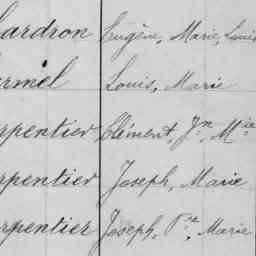 ardron Eugène, Marie, Louis
ermel Louis, Marie
rpentier Clément, Jn, Mie
rpentier Joseph, Marie
rpentier Joseph, Pre, Marie